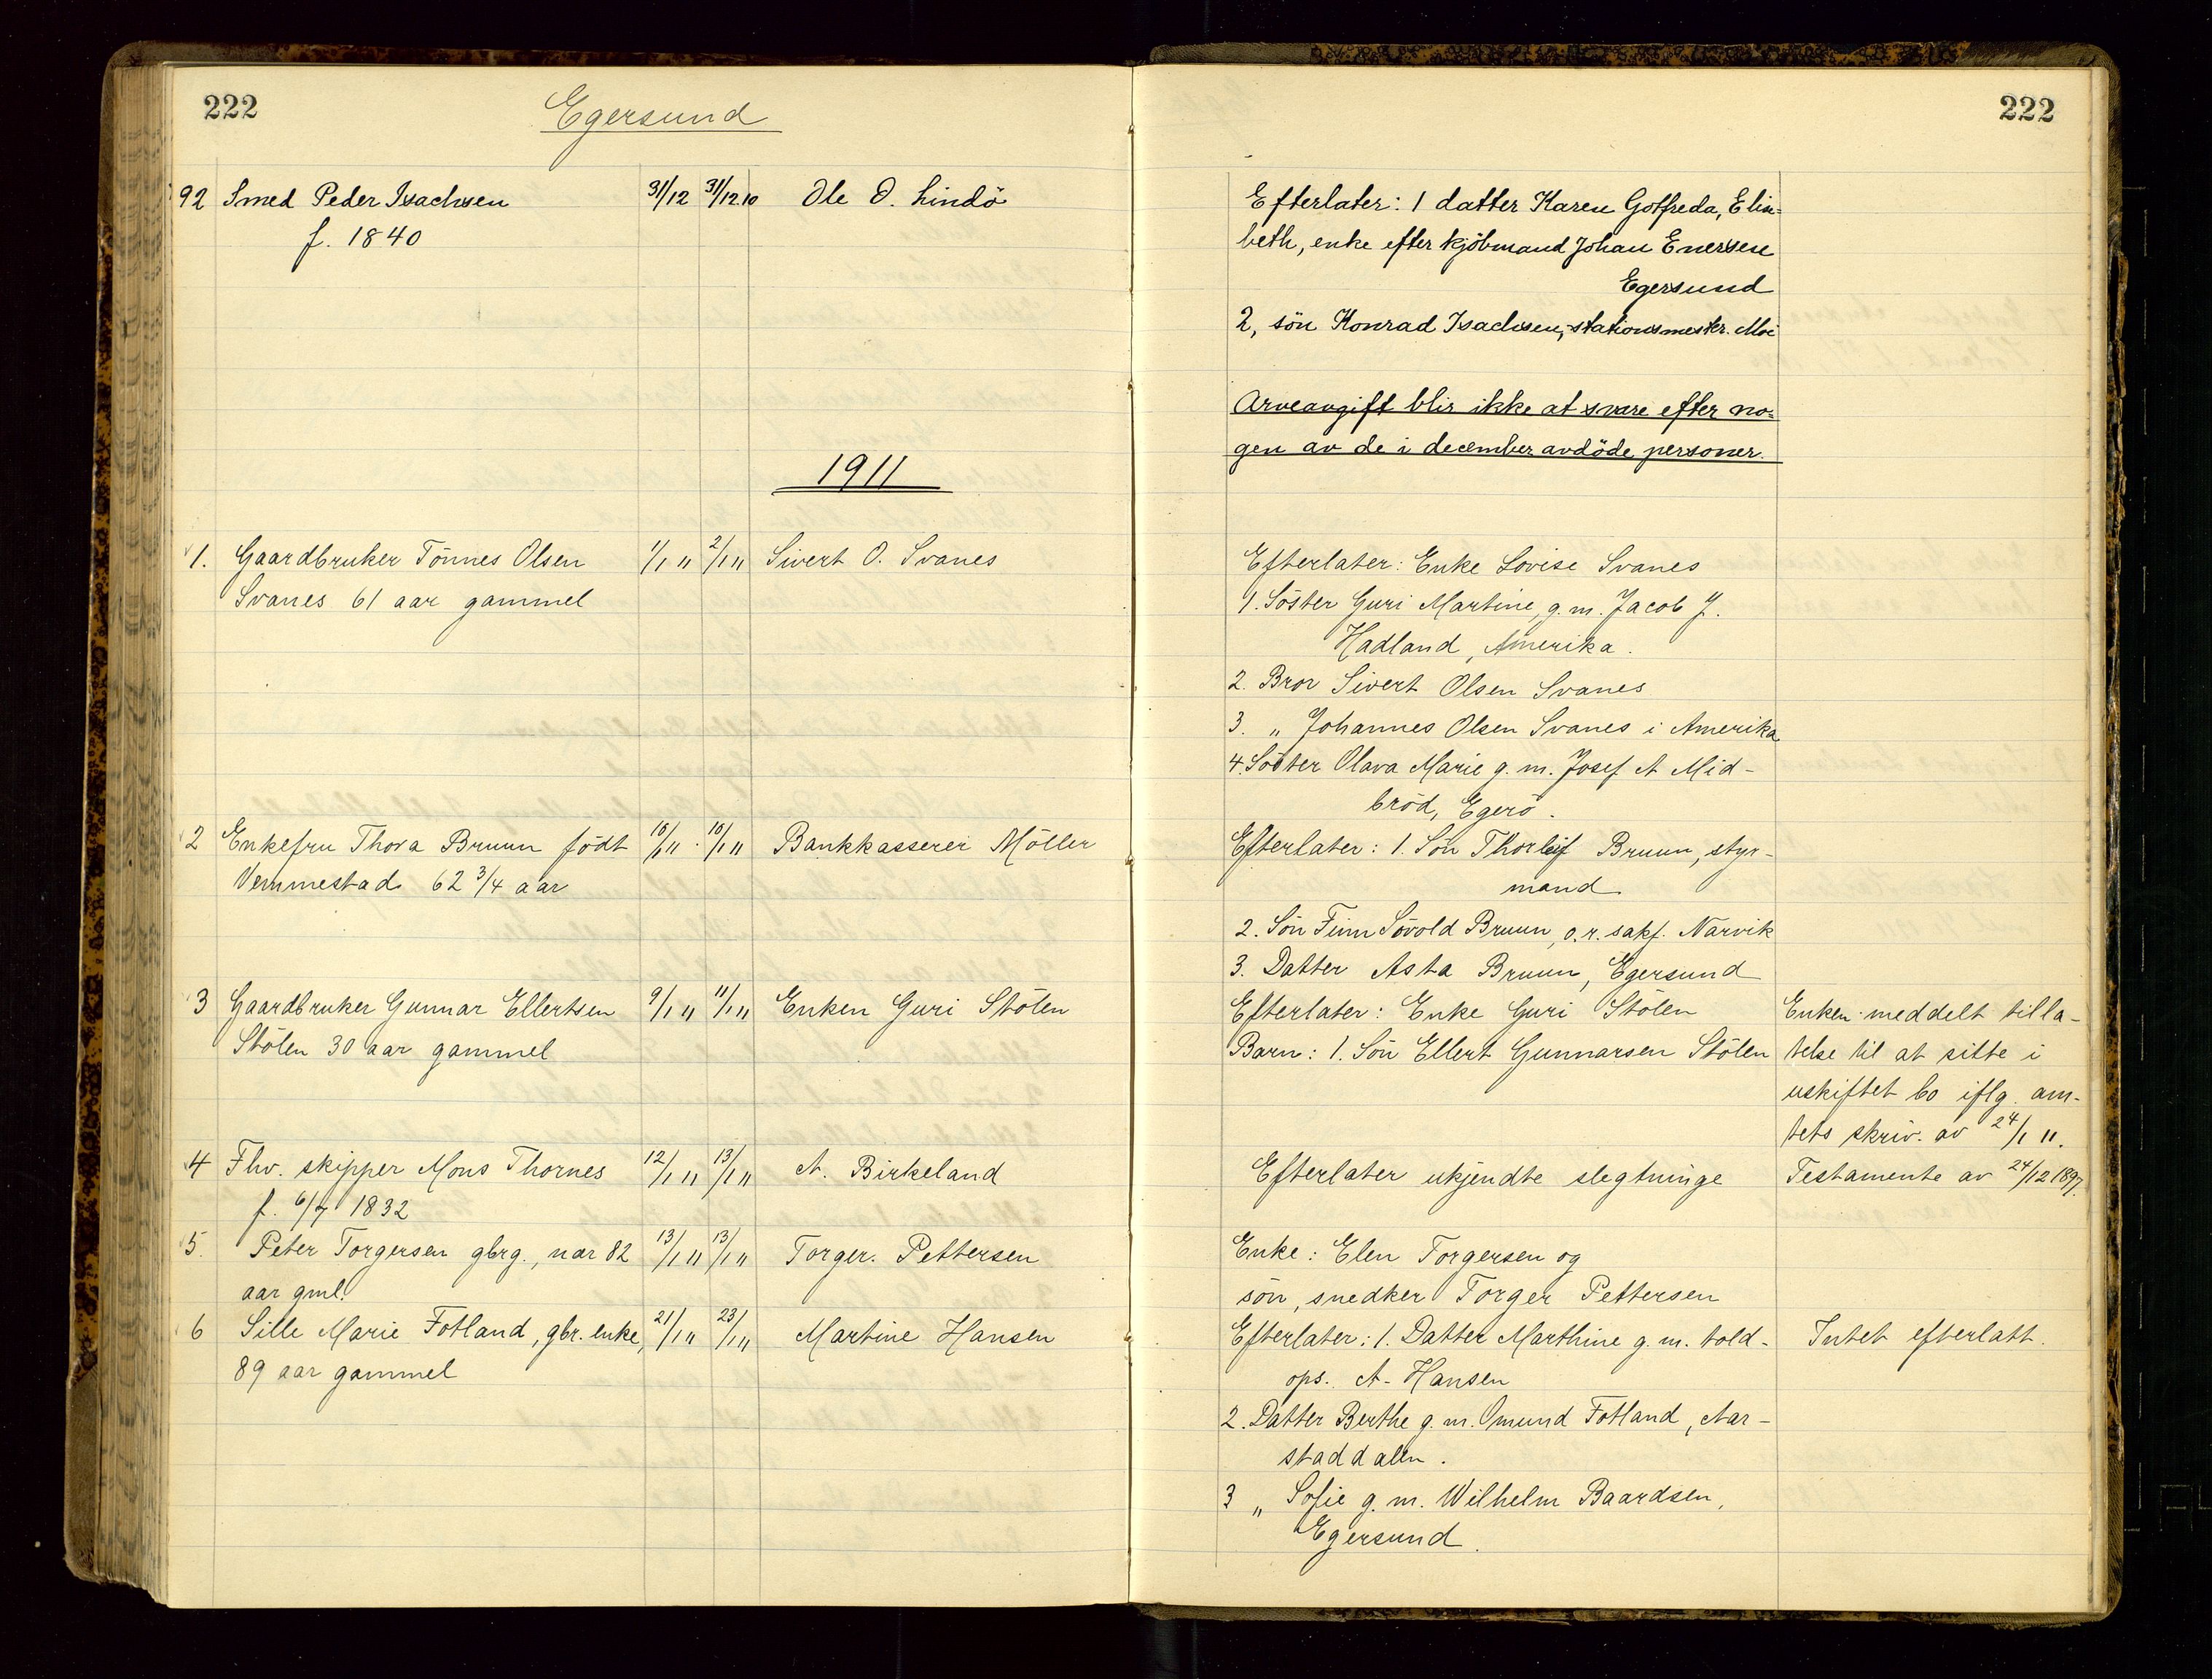 222
Egersund
92 Smed Peder Isachsen 31/12 31/12 10 Ole O. Lindö
f. 1840
1911
1. Gaardbruker Tönnes Olsen 1/1 11 2/1 11 Sivert O. Svanes
Svanes 61 aar gammel
2 Enkefru Thora Bruun födt 10/1 11 10/1 11 Bankkasserer Möller
Vemmestad 62 3/4 aar
3 Gaardbruker Gunnar Ellertsen 9/1 11 11/1 11 Enken Guri Stölen
Stölen 30 aar gammel
4 Fhv. skipper Mons Thornes 12/1 11 13/1 11 A. Birkeland
f. 6/7 1832
5. Peter Torgersen gbrg., nær 82 13/1 11 13/1 11 Torger. Pettersen
aar gml.
6 Sille Marie Fotland, gbr. enke, 21/1 11 23/1 11 Martine Hansen
89 aar gammel
222
Efterlater: 1 datter Karen Gotfreda, Elin=
beth, enke efter kjöbmand Johan Enersen
Egersund
2, sön Konrad Isachsen, stationsmester. Moi
Arveavgift blir ikke at svare efter no=
gen av de i december avdöde personer.
Efterlater: Enke Lovise Svanes
1. Söster Guri Martine, g. m. Jacob J.
Hadland, Amerika.
2. Bror Sivert Olsen Svanes
3. " Johannes Olsen Svanes i Amerika
4. Söster Olava Marie g. m. Josef A Mid-
bröd, Egerö.
Efterlater: 1. Sön Thorleif Bruun, styr-
mand
2. Sön Finn Sövold Bruun, o.r. sakf. Narvik
3. Datter Asta Bruun, Egersund
Efterlater: Enke Guri Stölen
Barn: 1. Sön Ellert Gunnarsen Stölen
Enken meddelt tilla-
telse til at sitte i
uskiftet bo iflg. am-
tets skriv. av 24/1 11.
Efterlater ukjendte slegtninge
Testamente av 24/12 1897.
Enke: Elen Torgersen og
sön, snedker Torger Pettersen
Efterlater: 1. Datter Marthine g. m. told- Intet efterlatt.
ops. A. Hansen
2. Datter Berthe g. m. Omund Fotland, Aar-
staddalen.
3 " Sofie g. m. Wilhelm Baardsen,
Egersund.